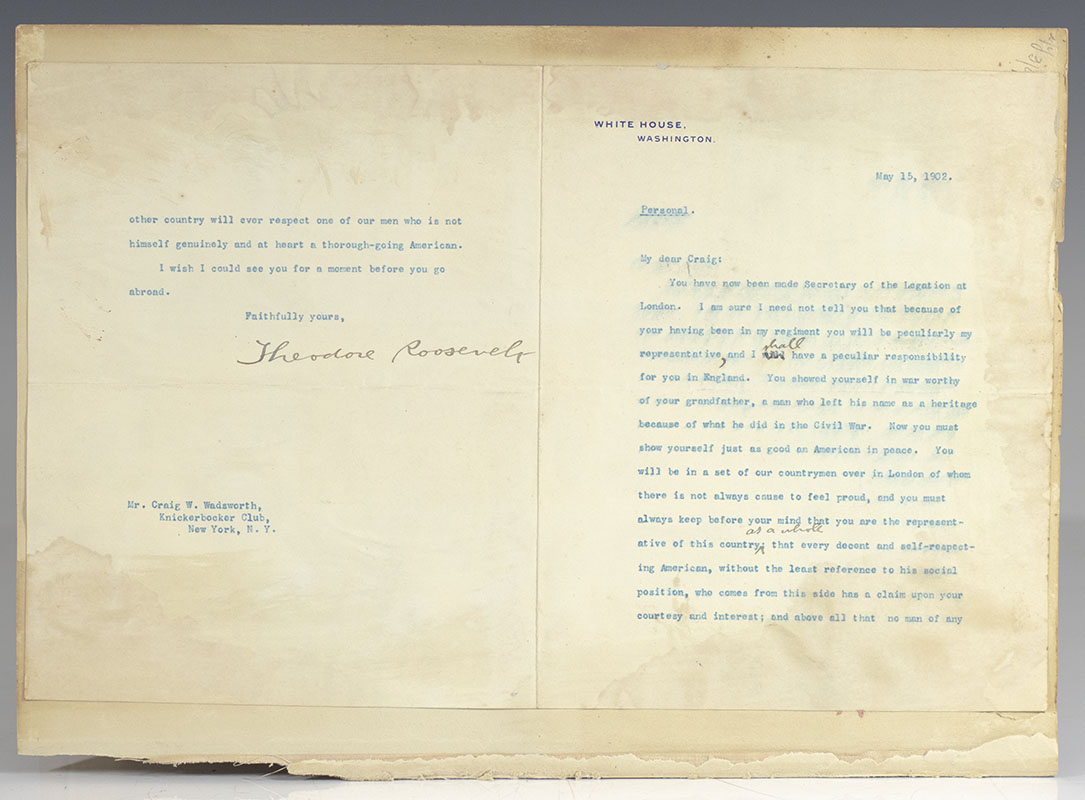 WHITE HOUSE,
WASHINGTON.
May 15, 1902.
Personal.
My dear Craig:
You have now been made Secretary of the Legation at
London. I am sure I need not tell you that because of
your having been in my regiment you will be peculiarly my
shall
representative, and I will have a peculiar responsibility
for you in England. You showed yourself in war worthy
of your grandfather, a man who left his name as a heritage
because of what he did in the Civil War. Now you must
show yourself just as good an American in peace. You
will be in a set of our countrymen over in London of whom
there is not always cause to feel proud, and you must
always keep before your mind that you are the represent-
as a whole
ative of this country; that every decent and self-respect-
ing American, without the least reference to his social
position, who comes from this side has a claim upon your
courtesy and interest; and above all that no man of any
other country will ever respect one of our men who is not
himself genuinely and at heart a thorough-going American.
I wish I could see you for a moment before you go
abroad.
Faithfully yours,
Theodore Roosevelt
Mr. Craig W. Wadsworth,
Knickerbocker Club,
New York, N. Y.